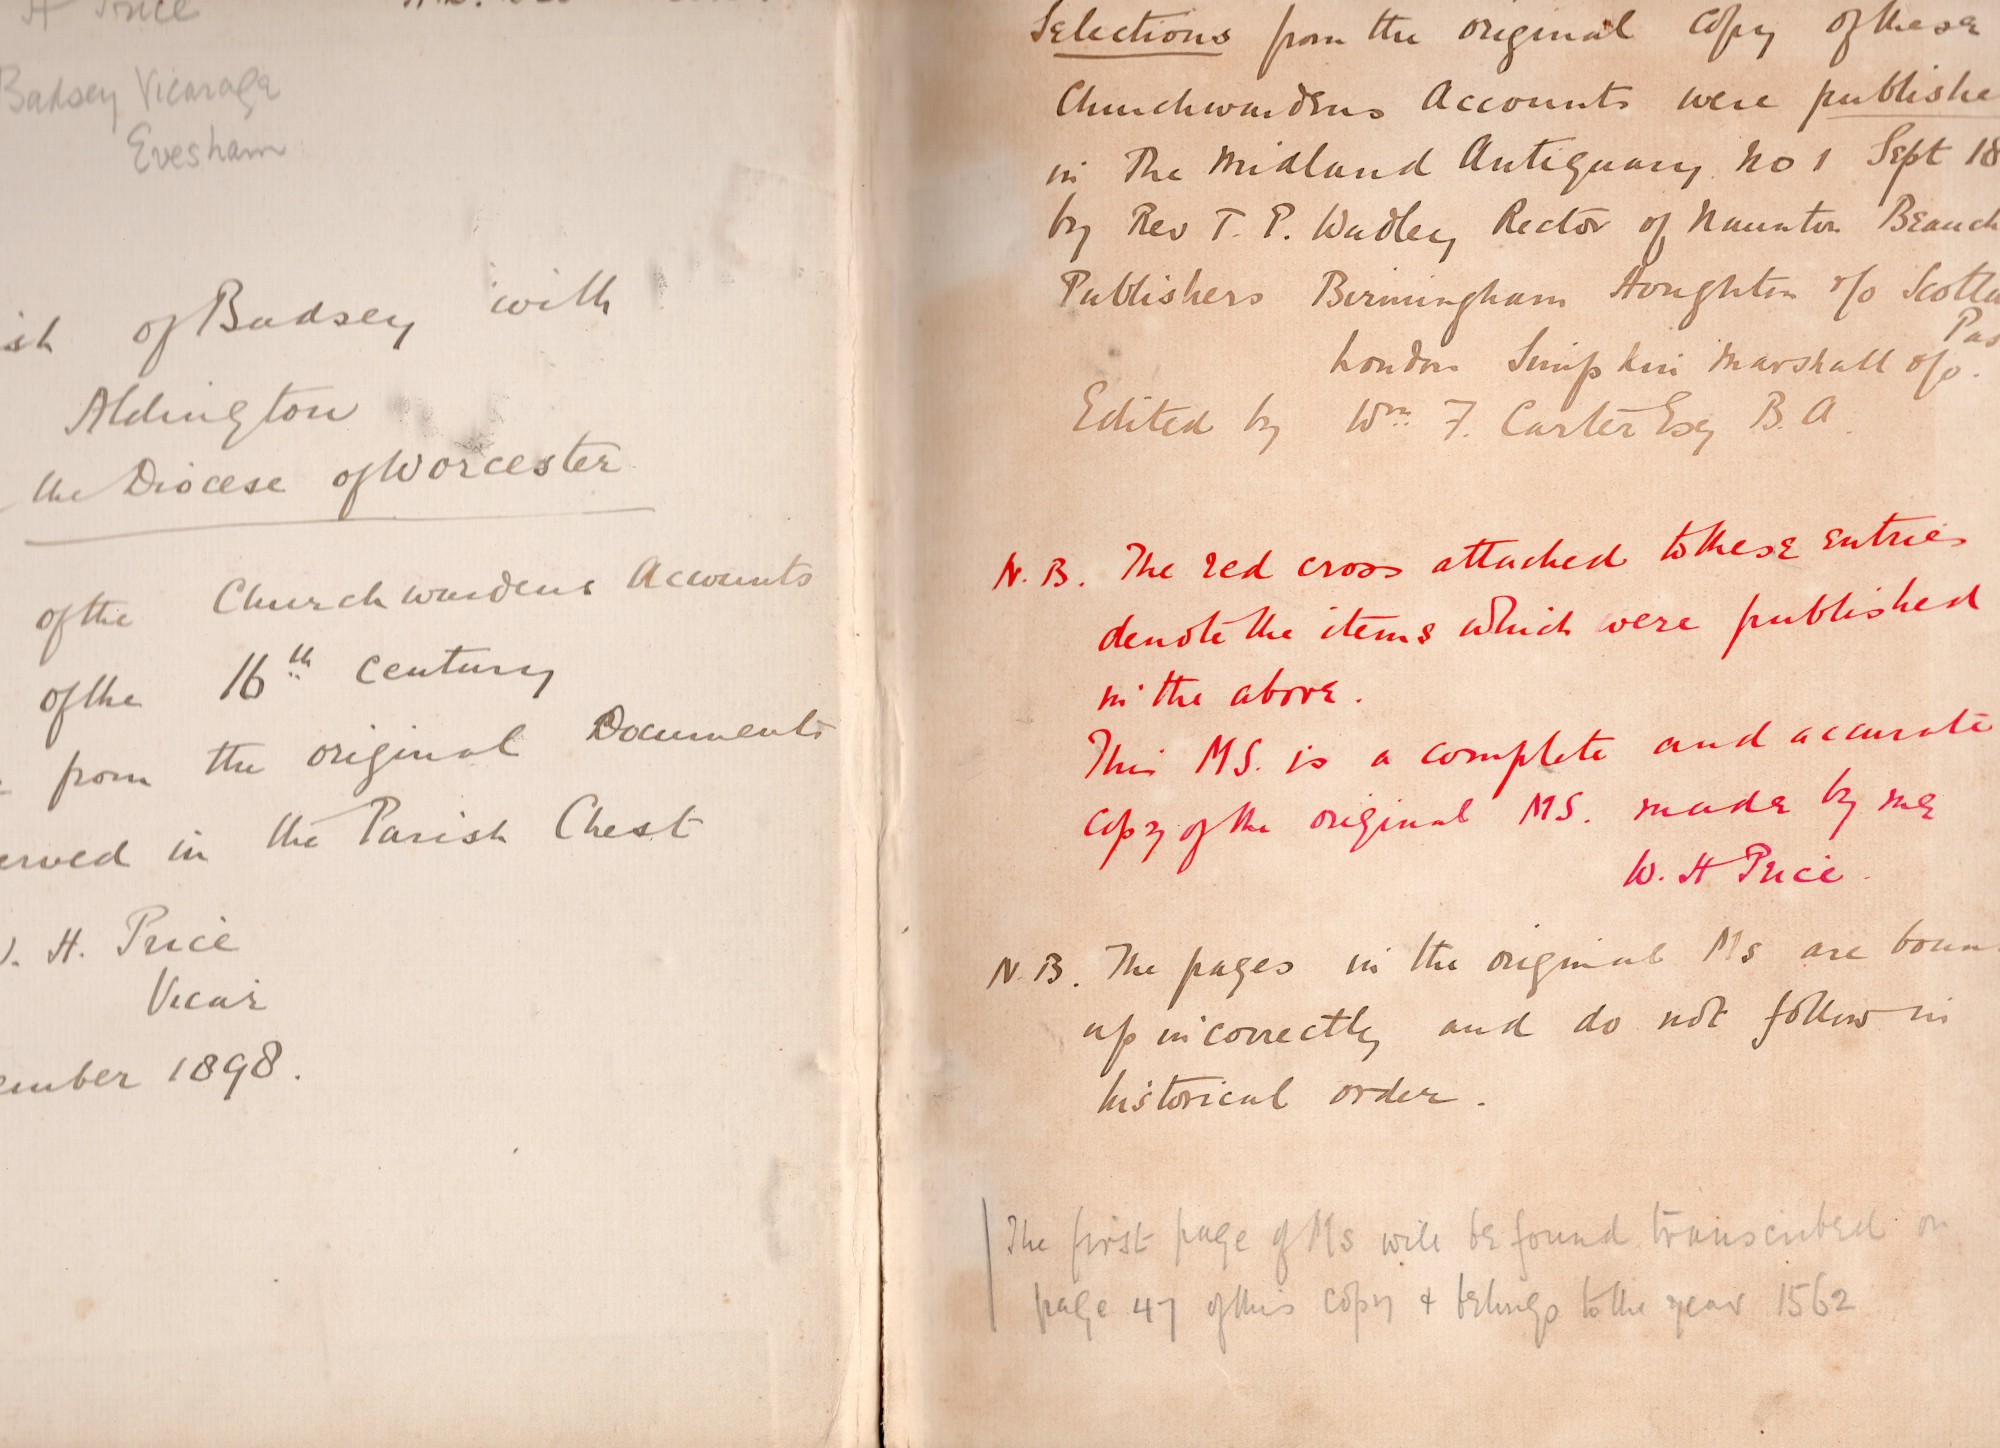 H Price
Badsey Vicarage
Evesham
ish of Badsey with
Aldington
the Diocese of Worcester
of the Churchwardens Accounts
of the 16th century
from the original Documents
erved in the Parish Chest
. H. Price
Vicar
ember 1898.
Selections from the original copy of these
Churchwardens Accounts were publishe
in The Midland Antiquary No 1 Sept 18
by Rev T. P. Wadley Rector of Naunton Beauch
Publishers Birmingham Houghton &/o Scotla
Pas
London Simpkin Marshall &/o.
Edited by Wm. F. Carter Esq B. A.
N. B. The red cross attached to these entries
denote the items which were published
in the above.
This MS. is a complete and accurate
copy of the original MS. made by me
W. H Price.
N. B. The pages in the original Ms are boun
up incorrectly and do not follow in
historical order.
The first page of Ms will be found transcribed on
page 47 of this copy & belongs to the year 1562